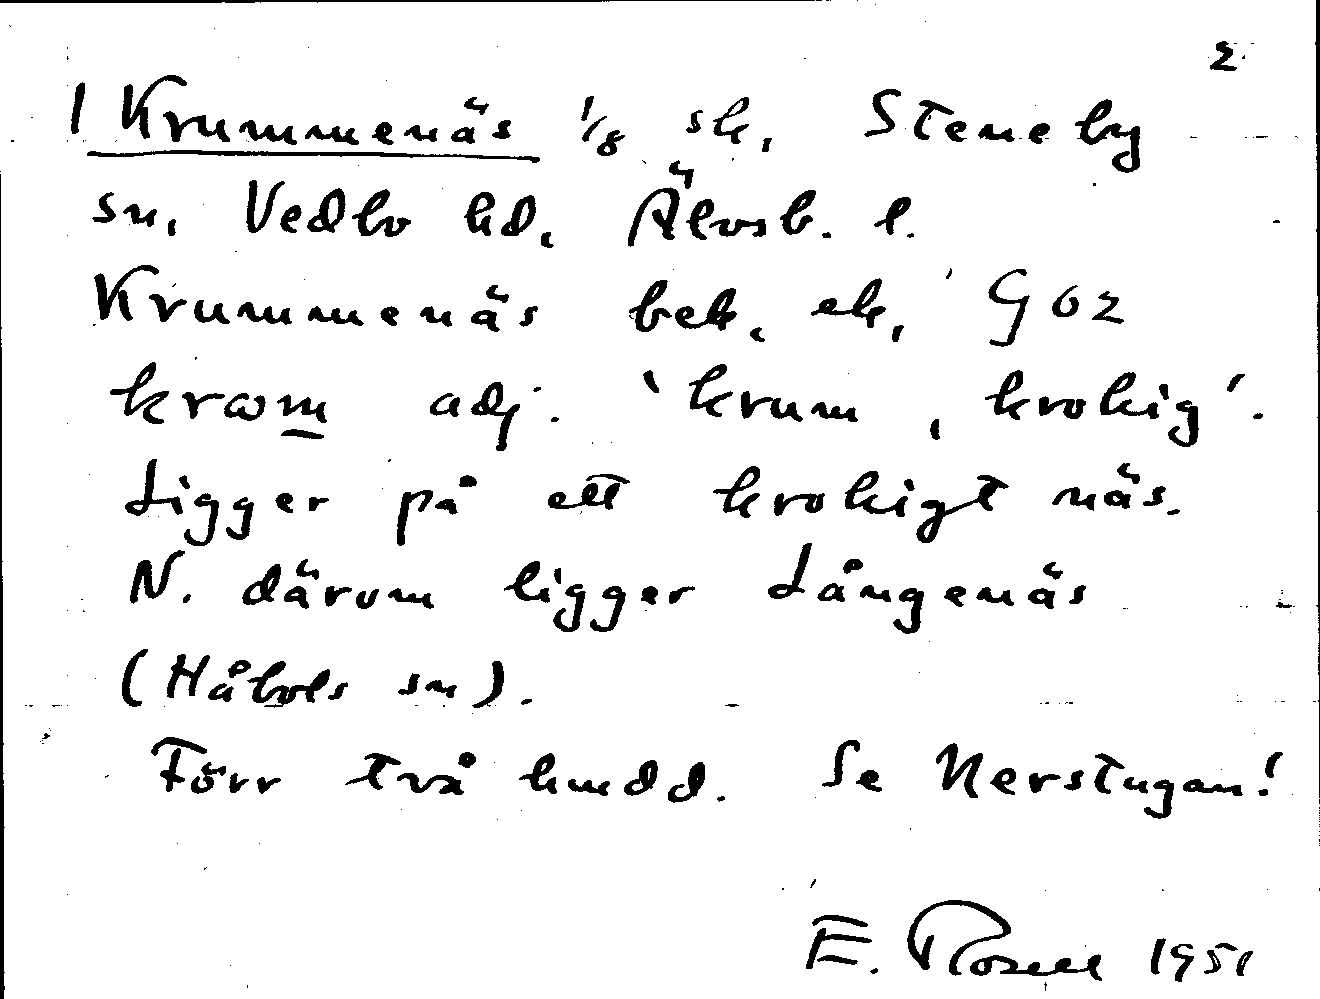 2
1 Krummenäs 1/8 sk. Steneby
sn. Vedbo hd. Älvsb. l.
Krummenäs bek. ek. G 02
krɷm adj. 'krum, krokig'.
Ligger på ett krokigt näs.
N. därom ligger Långenäs
(Håbols sn).
Förr två hmdd. Se Nerstugan!
E. Rosell 1951